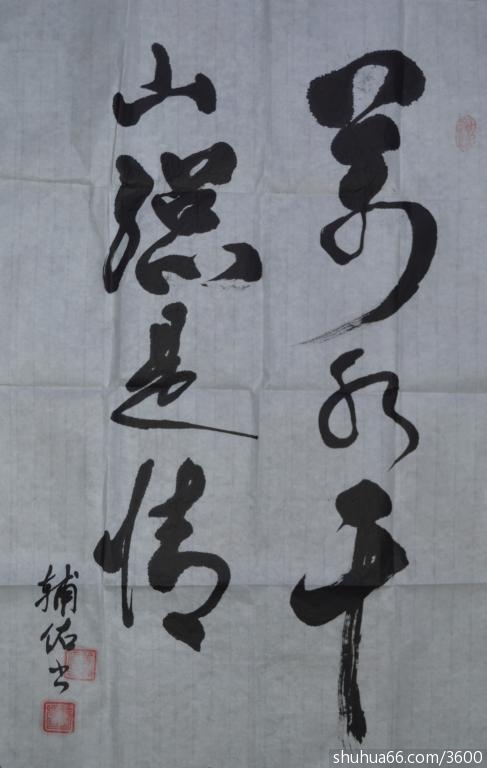 萬水千
山總是情
輔佑书
shuhua66.com/3600